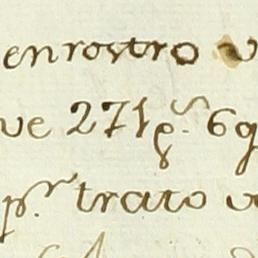 enrostro v
ve 271 p.s 6q
p.r trato v